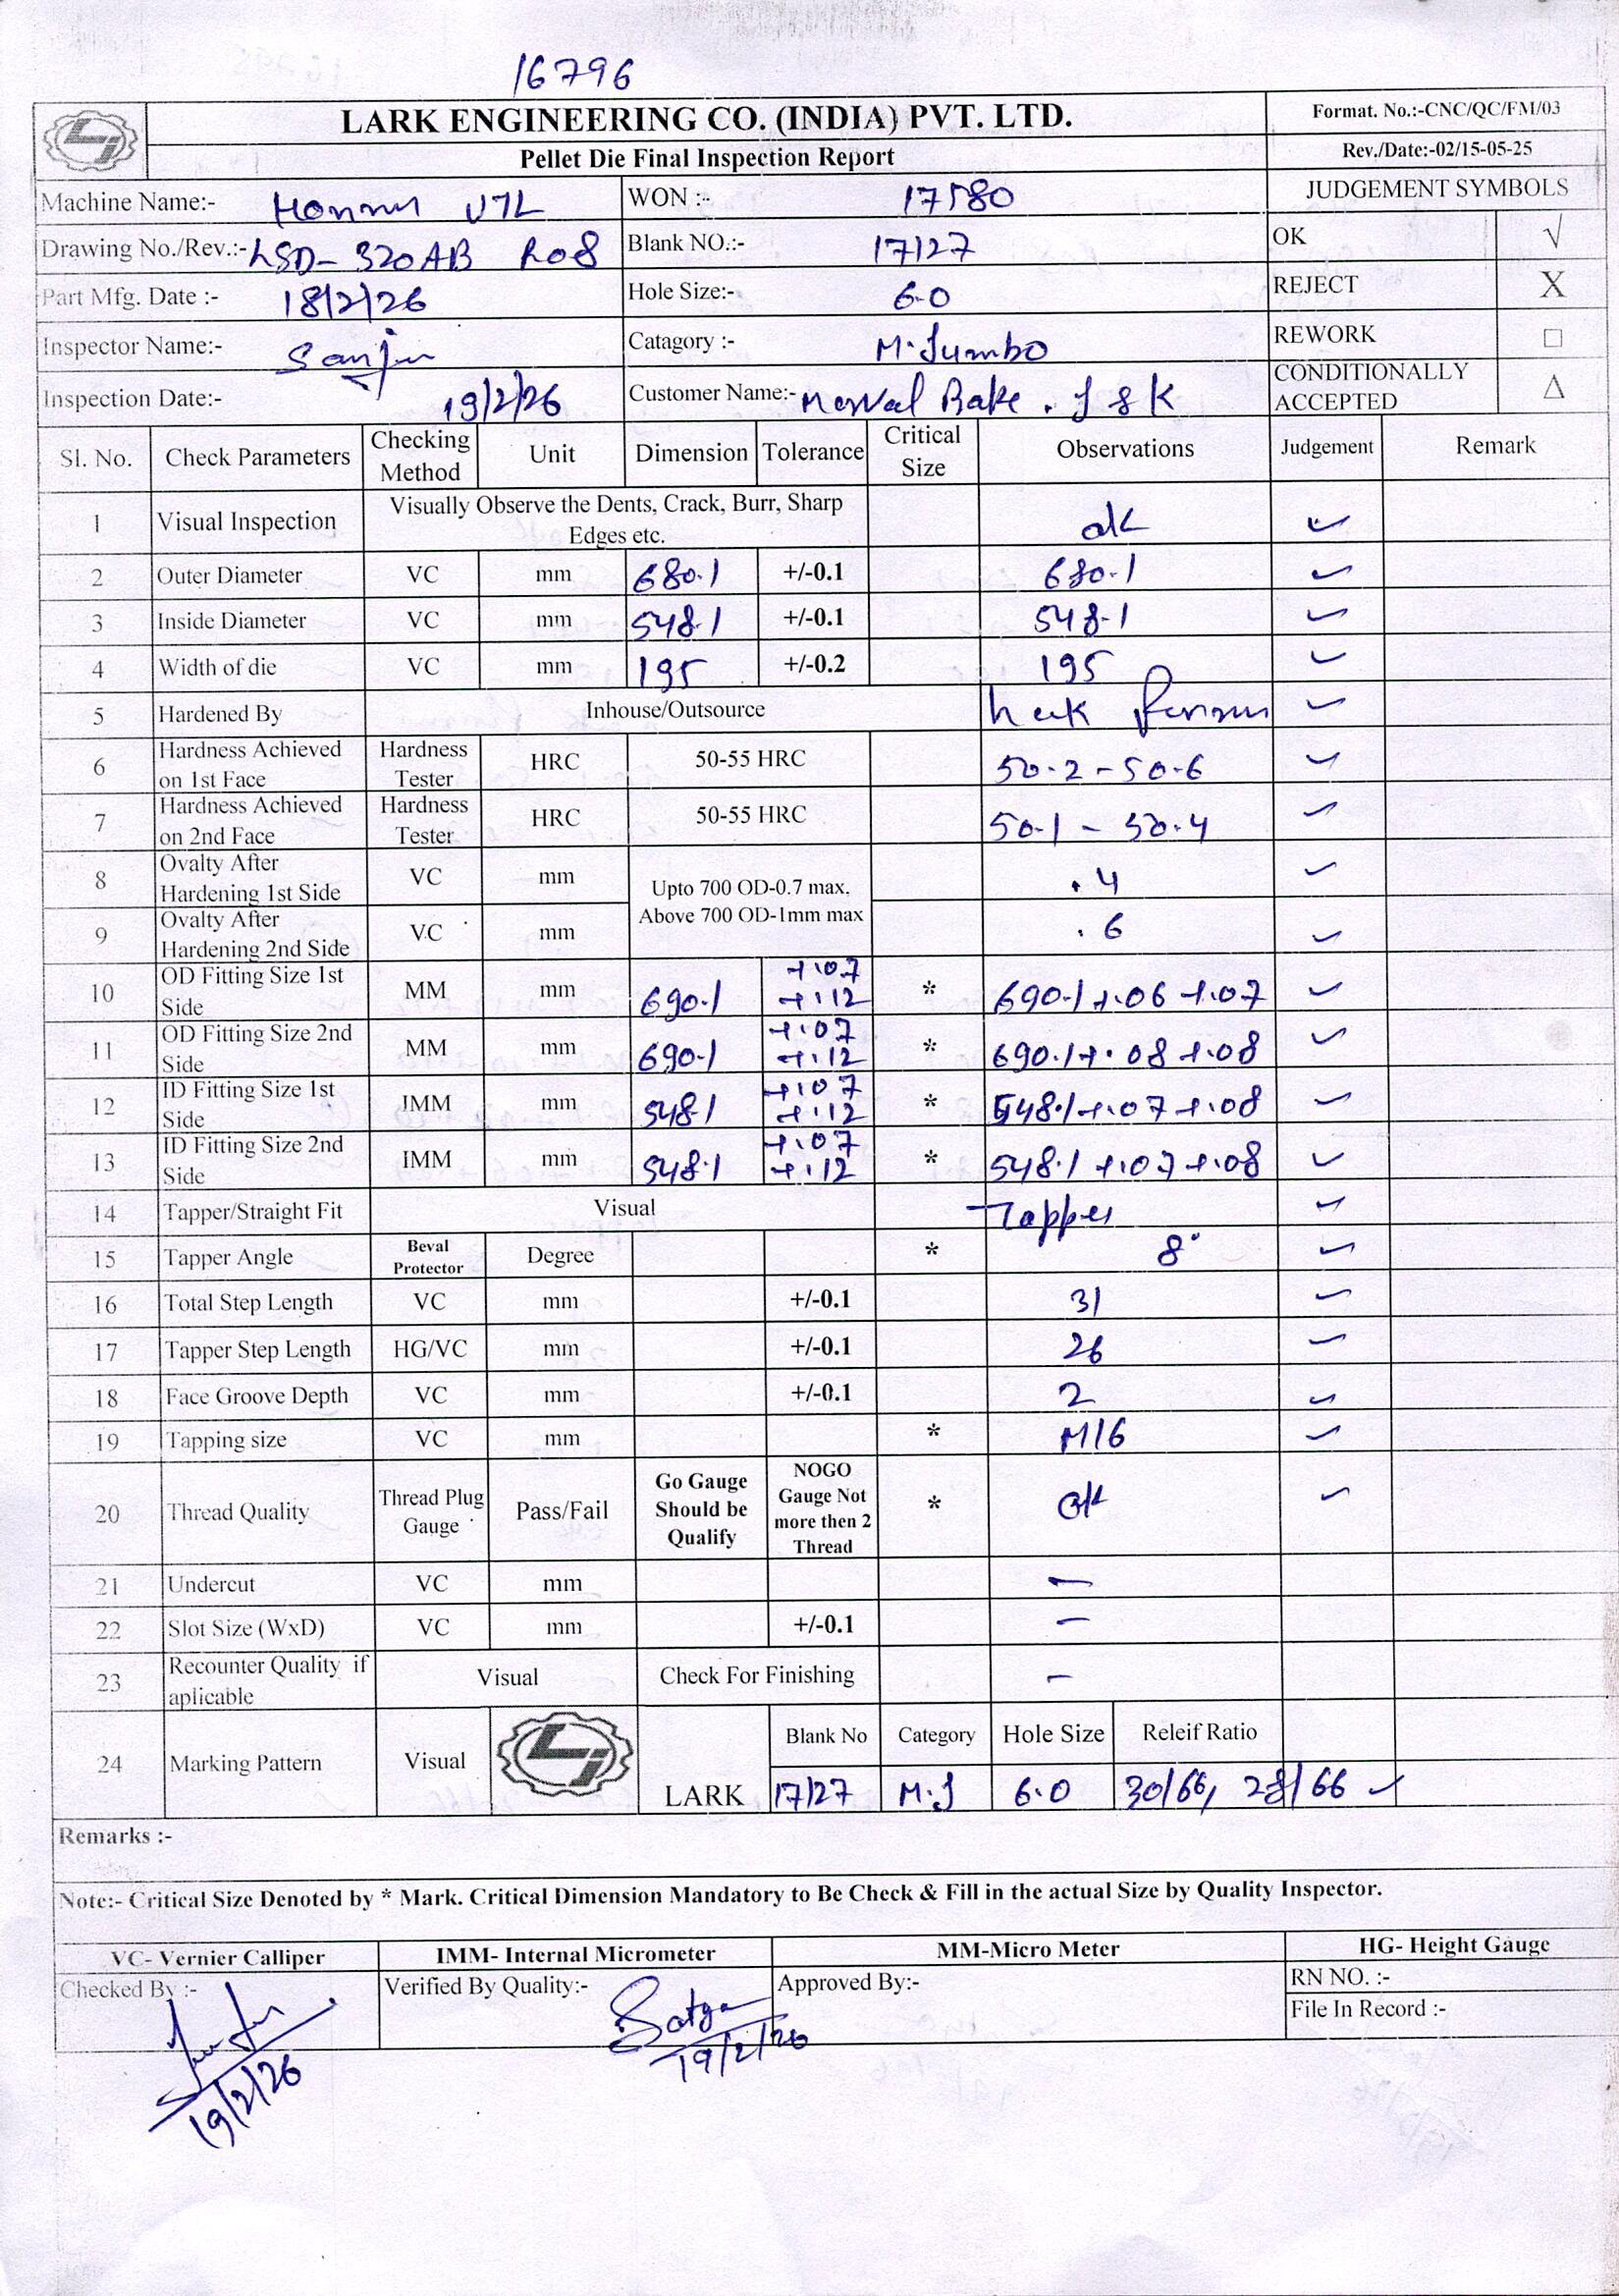 16796
LARK ENGINEERING CO. (INDIA) PVT. LTD.
Format. No.:-CNC/QC/FM/03
Pellet Die Final Inspection Report
Rev./Date:-02/15-05-25
Machine Name:- UTL WON :- 17580 JUDGEMENT SYMBOLS
Drawing No./Rev.:- LSD-320AB R08 Blank NO.:- 17127 OK √
Part Mfg. Date :- 18/2/26 Hole Size:- 6.0 REJECT X
Inspector Name:- Sanju Catagory :- M.Jumbo REWORK □
Inspection Date:- 19/2/26 Customer Name:- Bake. J & K CONDITIONALLY ACCEPTED Δ
Sl. No. Check Parameters Checking Method Unit Dimension Tolerance Critical Size Observations Judgement Remark
1 Visual Inspection Visually Observe the Dents, Crack, Burr, Sharp Edges etc. ok ✓
2 Outer Diameter VC mm 680.1 +/-0.1 680.1 ✓
3 Inside Diameter VC mm 548.1 +/-0.1 548.1 ✓
4 Width of die VC mm 195 +/-0.2 195 ✓
5 Hardened By Inhouse/Outsource ✓
6 Hardness Achieved on 1st Face Hardness Tester HRC 50-55 HRC 50.2-50.6 ✓
7 Hardness Achieved on 2nd Face Hardness Tester HRC 50-55 HRC 50.1-50.4 ✓
8 Ovalty After Hardening 1st Side VC mm Upto 700 OD-0.7 max. Above 700 OD-1mm max .4 ✓
9 Ovalty After Hardening 2nd Side VC mm .6 ✓
10 OD Fitting Size 1st Side MM mm 690.1 +.07 +.12 * 690.1 +.06 +.07 ✓
11 OD Fitting Size 2nd Side MM mm 690.1 +.07 +.12 * 690.1 +.08 +.08 ✓
12 ID Fitting Size 1st Side IMM mm 548.1 +.07 +.12 * 548.1 +.07 +.08 ✓
13 ID Fitting Size 2nd Side IMM mm 548.1 +.07 +.12 * 548.1 +.07 +.08 ✓
14 Tapper/Straight Fit Visual Tapper ✓
15 Tapper Angle Beval Protector Degree * 8° ✓
16 Total Step Length VC mm +/-0.1 31 ✓
17 Tapper Step Length HG/VC mm +/-0.1 26 ✓
18 Face Groove Depth VC mm +/-0.1 2 ✓
19 Tapping size VC mm * M16 ✓
20 Thread Quality Thread Plug Gauge Pass/Fail Go Gauge Should be Qualify NOGO Gauge Not more then 2 Thread * ok ✓
21 Undercut VC mm —
22 Slot Size (WxD) VC mm +/-0.1 —
23 Recounter Quality if aplicable Visual Check For Finishing —
24 Marking Pattern Visual LARK Blank No Category Hole Size Releif Ratio
17127 M.J 6.0 30/66, 28/66 ✓
Remarks :-
Note:- Critical Size Denoted by * Mark. Critical Dimension Mandatory to Be Check & Fill in the actual Size by Quality Inspector.
VC- Vernier Calliper IMM- Internal Micrometer MM-Micro Meter HG- Height Gauge
Checked By :- Verified By Quality:- Satya Approved By:- RN NO. :-
File In Record :-
19/2/26 19/2/26